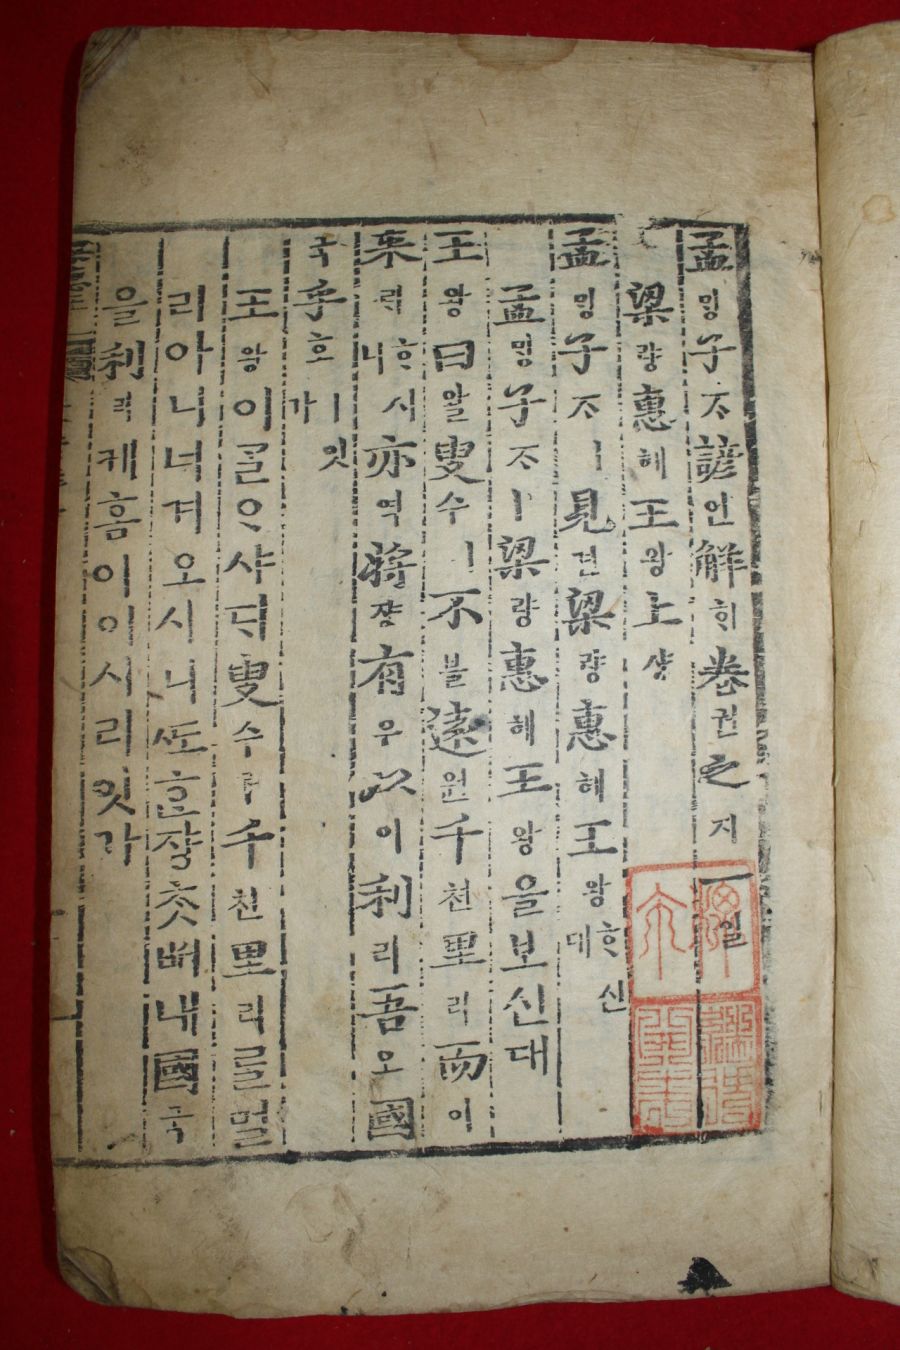 孟밍子ᄌᆞ諺언解ᄒᆡ卷권之지一일
梁량惠혜王왕上샹
孟밍子ᄌᆞㅣ見견梁량惠혜王왕ᄒᆞ신대
孟밍子ᄌᆞㅣ梁량惠혜王왕을보신대
王왕曰왈叟수ㅣ不블遠원千쳔里리而이
來ᄅᆡᄒᆞ시니亦역將쟝有유以이利리吾오國
국乎호ㅣ잇가
王왕이ᄀᆞᆯᄋᆞ샤ᄃᆡ叟수ㅣ千쳔里리ᄅᆞᆯ멀
리아니너겨오시니ᄯᅩᄒᆞᆫ쟝ᄎᆞᆺᄡᅥ내國국
을利리케홈이이시리잇가